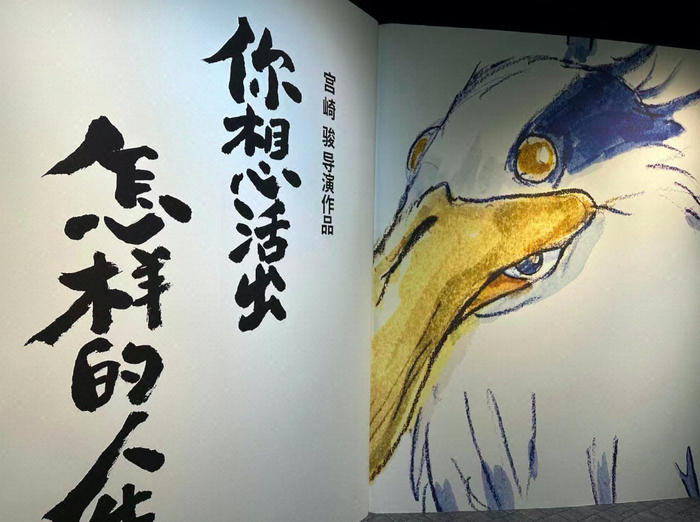 宫崎骏导演作品
你想活出
怎样的人